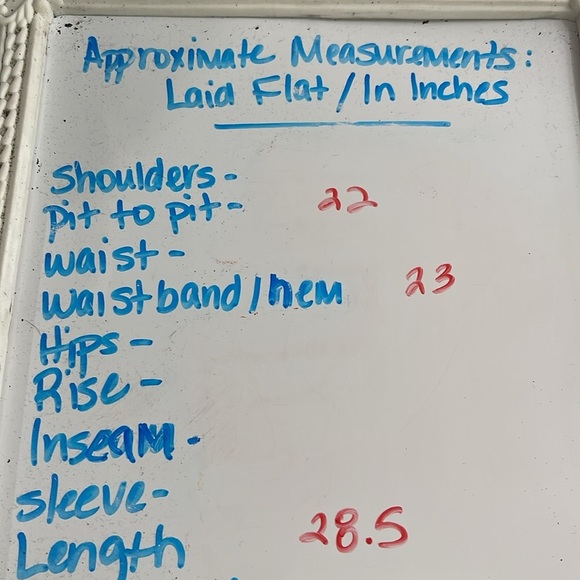 Approximate Measurements:
Laid Flat / In Inches
Shoulders-
pit to pit- 22
waist-
waistband / hem 23
Hips-
Rise-
Inseam-
sleeve-
Length 28.5